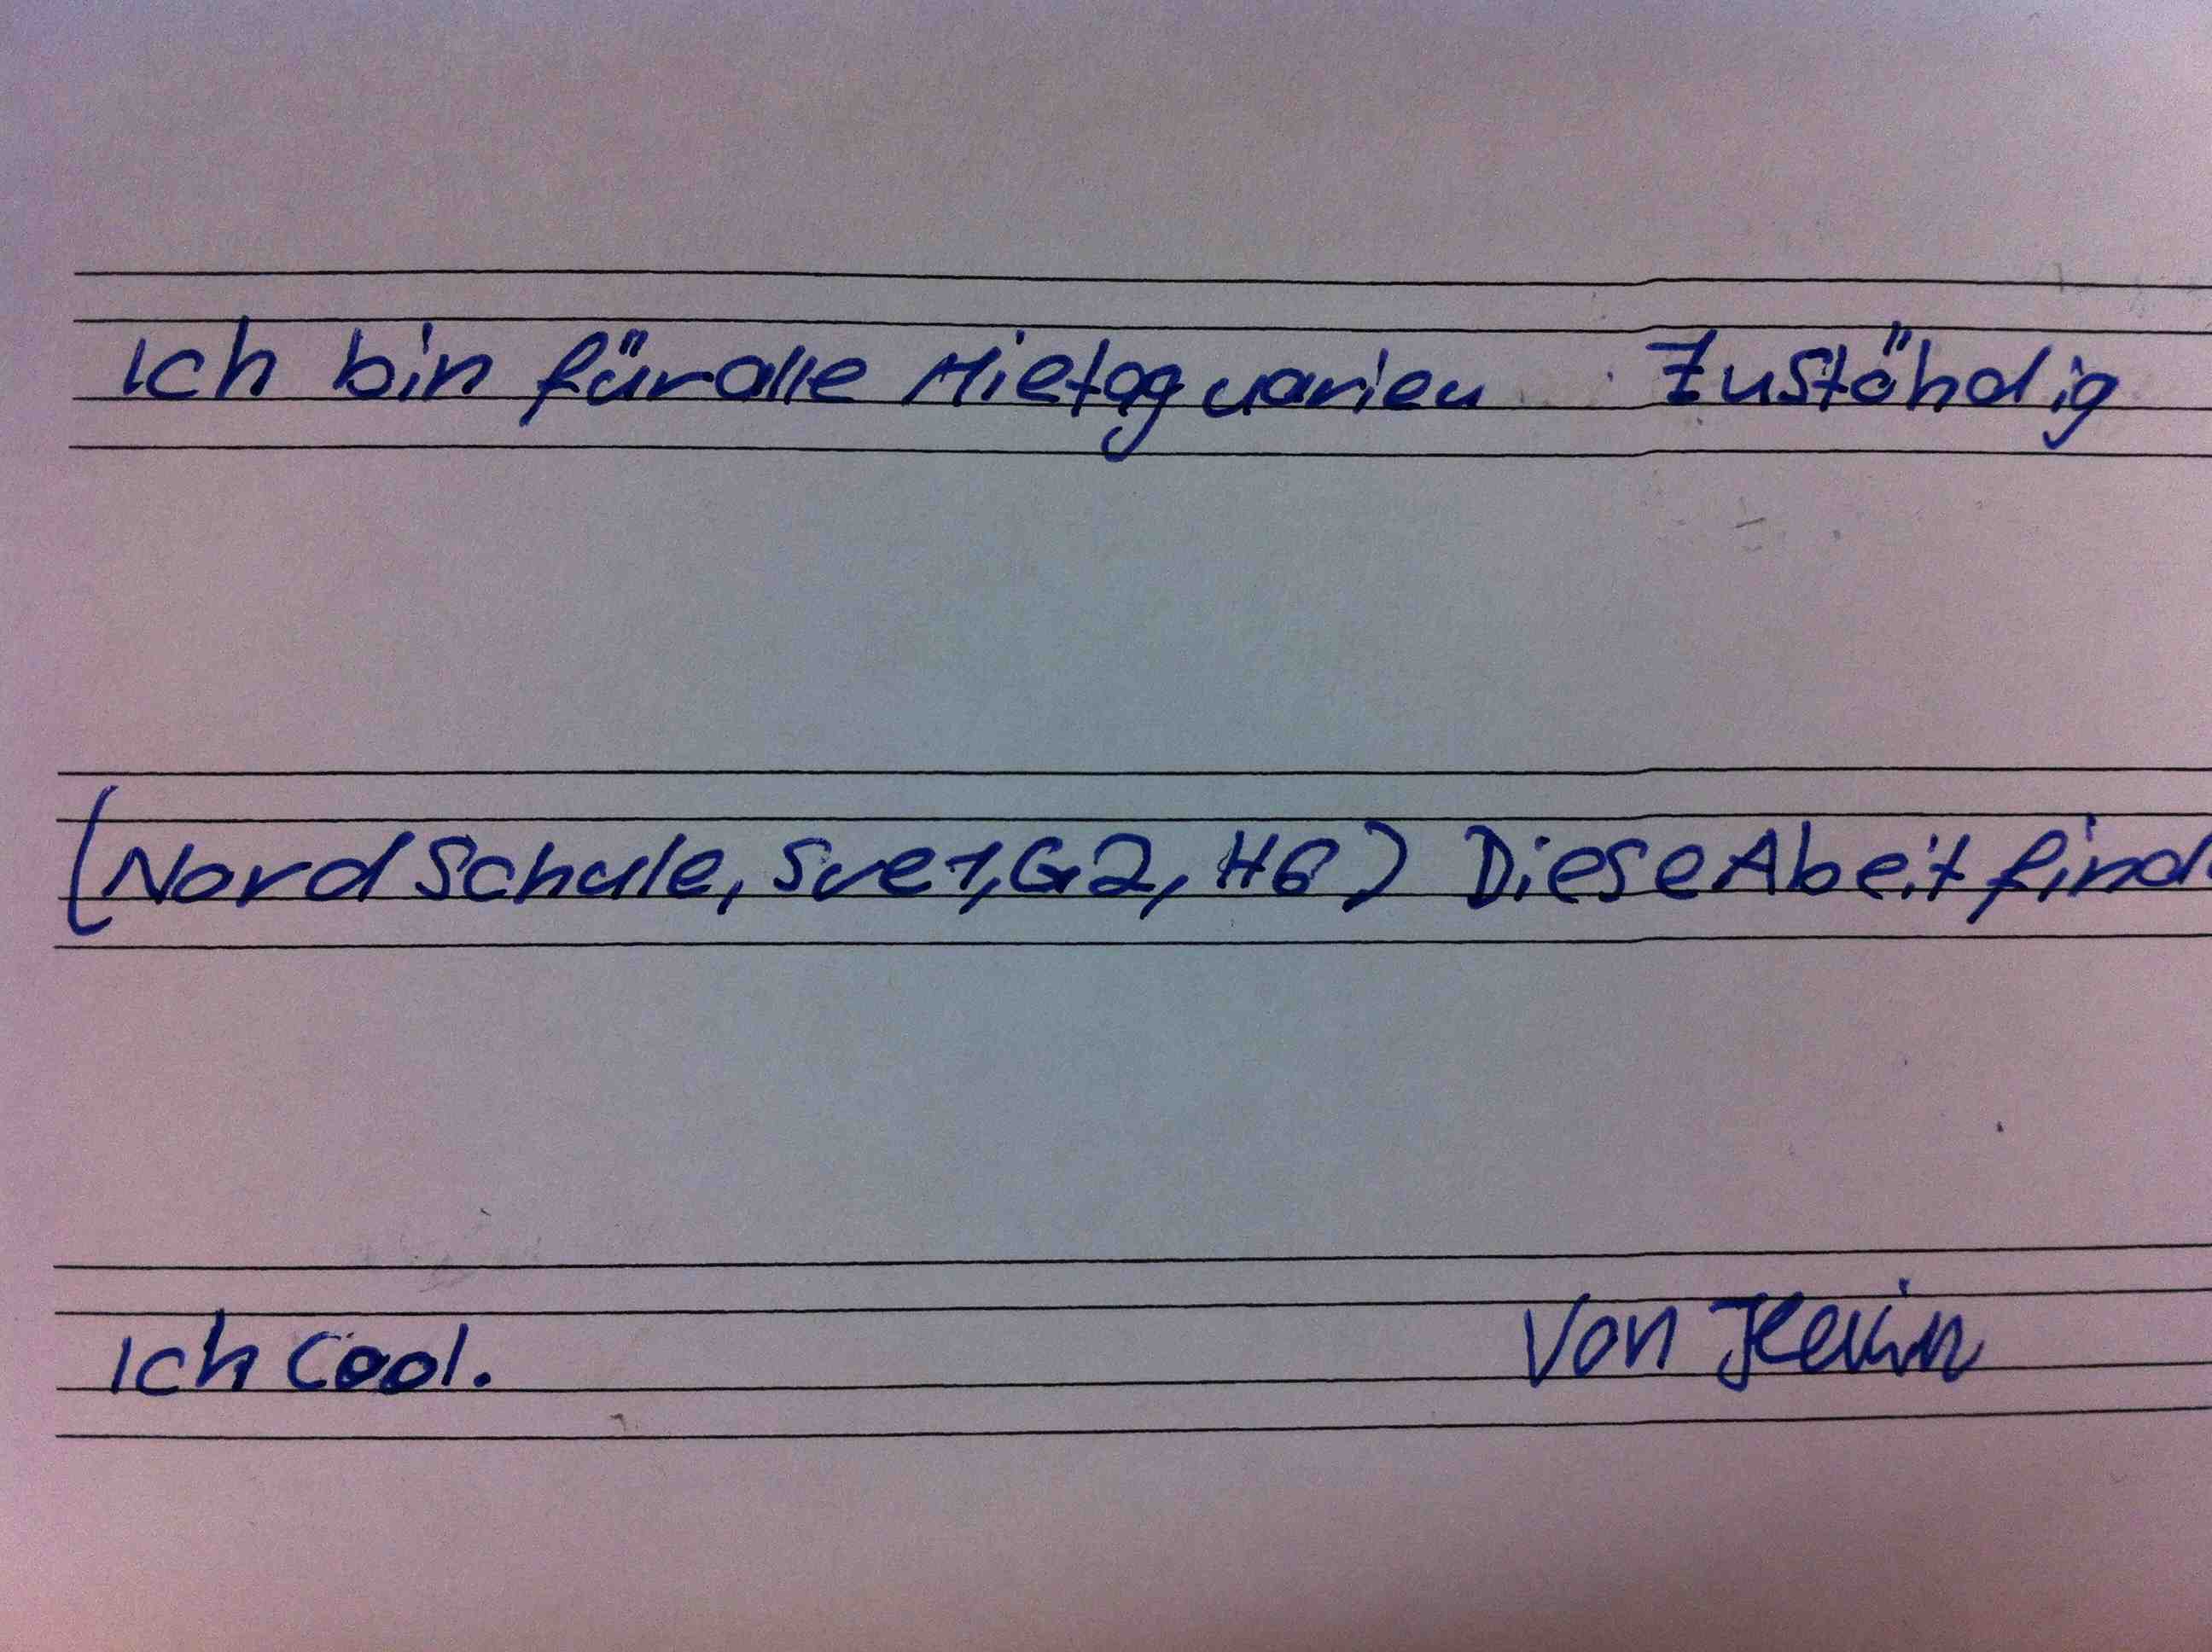 Ich bin für alle Mietaquarien Zuständig
(Nord Schule, Sve1, G2, H6) Diese Abeit find
ich Cool. Von Kevin